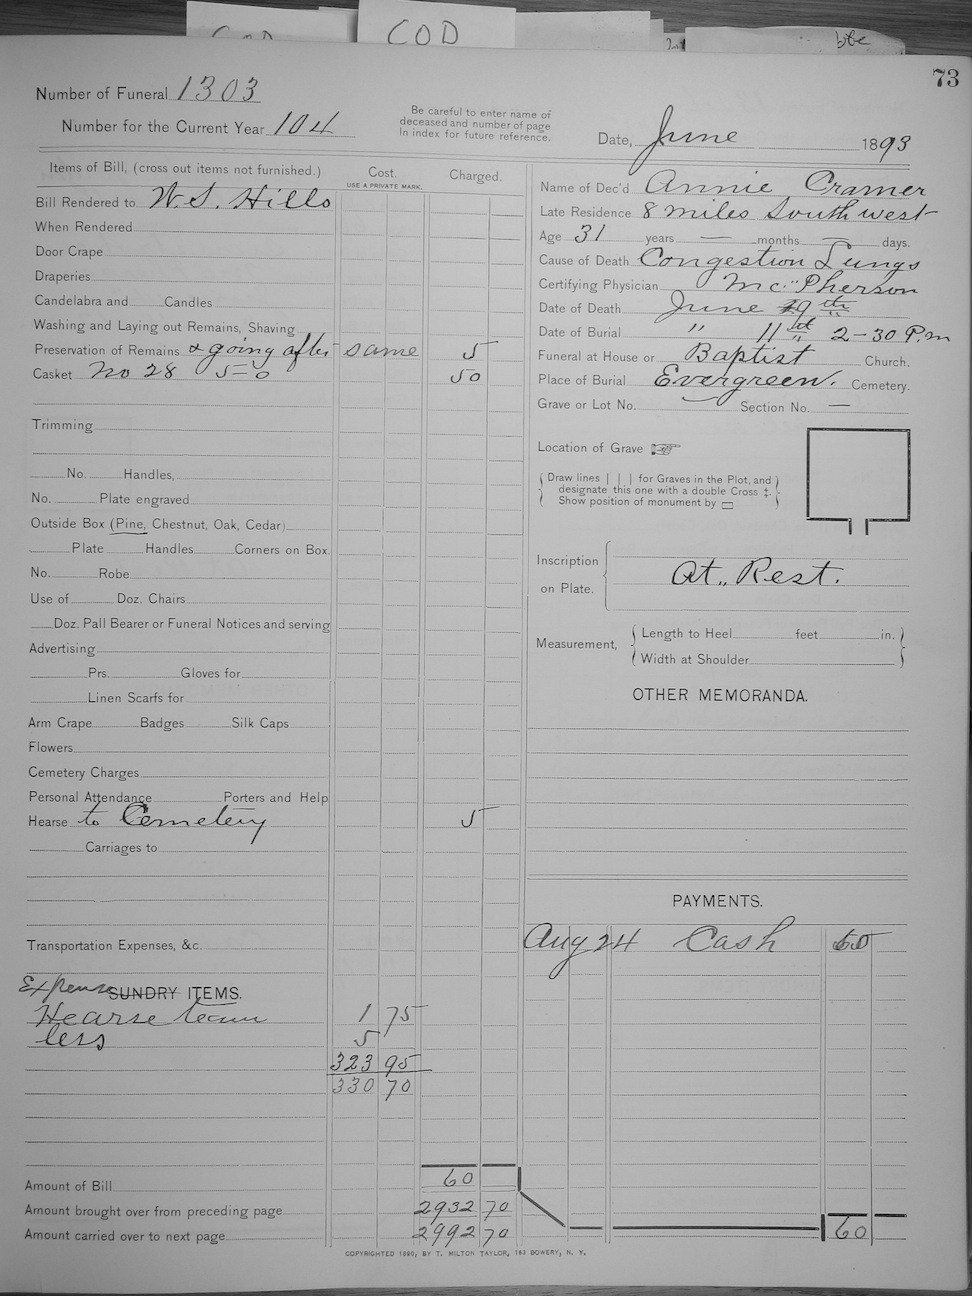 COD
COD
73
Number of Funeral 1303
Number for the Current Year 104
Be careful to enter name of
deceased and number of page
in index for future reference.
Date, June 1893
Items of Bill, (cross out items not furnished.) Cost. Charged.
USE A PRIVATE MARK.
Bill Rendered to W. S. Hills
When Rendered
Door Crape
Draperies
Candelabra and Candles
Washing and Laying out Remains, Shaving
Preservation of Remains & going after same 5
Casket No 28 5-0 50
Trimming
No. Handles,
No. Plate engraved
Outside Box (Pine, Chestnut, Oak, Cedar)
Plate Handles Corners on Box.
No. Robe
Use of Doz. Chairs
Doz. Pall Bearer or Funeral Notices and serving
Advertising
Prs. Gloves for
Linen Scarfs for
Arm Crape Badges Silk Caps
Flowers
Cemetery Charges
Personal Attendance Porters and Help
Hearse to Cemetery 5
Carriages to
Transportation Expenses, &c.
Expense SUNDRY ITEMS.
Hearse team 1 75
less 5
323 95
330 70
Amount of Bill 60
Amount brought over from preceding page 2932 70
Amount carried over to next page 2992 70
Name of Dec'd Annie Cramer
Late Residence 8 miles South west
Age 31 years — months — days.
Cause of Death Congestion Lungs
Certifying Physician Mc"Pherson
Date of Death June 9th
Date of Burial " 11st 2-30 P.m
Funeral at House or Baptist Church.
Place of Burial Evergreen. Cemetery.
Grave or Lot No. — Section No. —
Location of Grave
Draw lines | | | for Graves in the Plot, and
designate this one with a double Cross ‡.
Show position of monument by
Inscription
on Plate.
At,, Rest.
Measurement,
Length to Heel feet in.
Width at Shoulder
OTHER MEMORANDA.
PAYMENTS.
Aug 24 Cash 60
60
COPYRIGHTED 1890, BY T. MILTON TAYLOR, 163 BOWERY, N. Y.